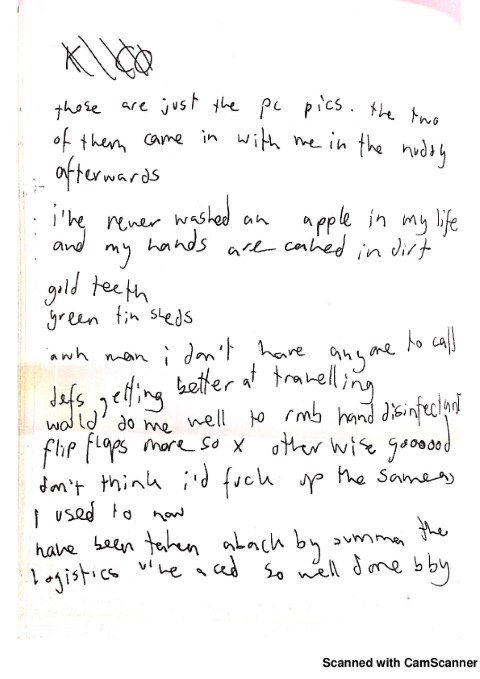 those are just the pc pics. the two
of them came in with me in the nuddy
afterwards
i've never washed an apple in my life
and my hands are caked in dirt
gold teeth
green tin sheds
awh man i don't have anyone to call
defs getting better at travelling
would do me well to rmb hand disinfectant
flip flops more so x otherwise goooood
don't think i'd fuck up the same as
I used to now
have been taken aback by summa the
logistics i've aced so well done bby
Scanned with CamScanner